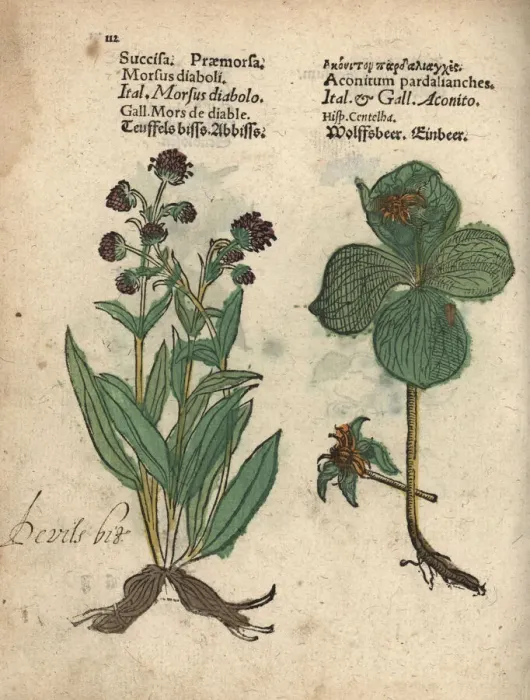 112
Succiſa. Præmorſa.
Morſus diaboli.
Ital. Morſus diabolo.
Gall. Mors de diable.
Teuffels biſſ. Abbiſſ.
Ἀκόνιτον παρδαλιαγχὲς.
Aconitum pardalianches.
Ital. & Gall. Aconito.
Hiſp. Centelha.
Wolffsbeer. Einbeer.
Devils bit